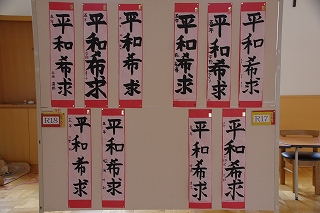 平和希求
平和希求
平和希求
平和希求
平和希求
平和希求
R18
平和希求
平和希求
平和希求
平和希求
R17